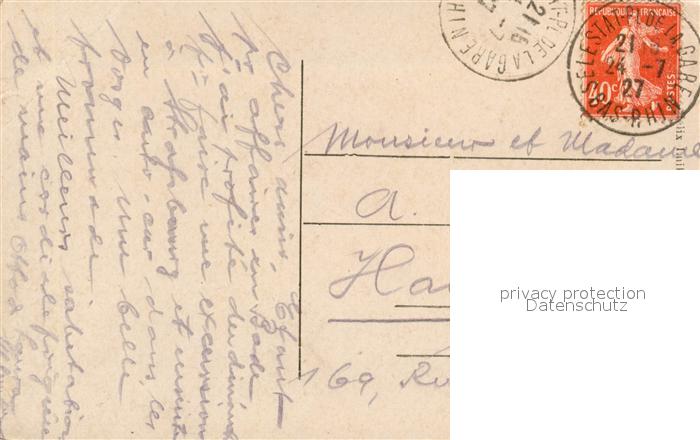 Chers amis, Etant
pr affaires en Bade
j'ai profité du dimanche
pr faire une excursion
à Strasbourg et ensuite
en auto-car dans les
Vosges. Une belle
promenade.
Meilleures salutations
et une cordiale poignée
de mains
REPUBLIQUE FRANÇAISE
40c
POSTES
SELESTAT DE LA GARE
21
24 -7
27
BAS-RHIN
DE LA GARE
Monsieur et Madame
A.
Ha
169, Ru
privacy protection
Datenschutz